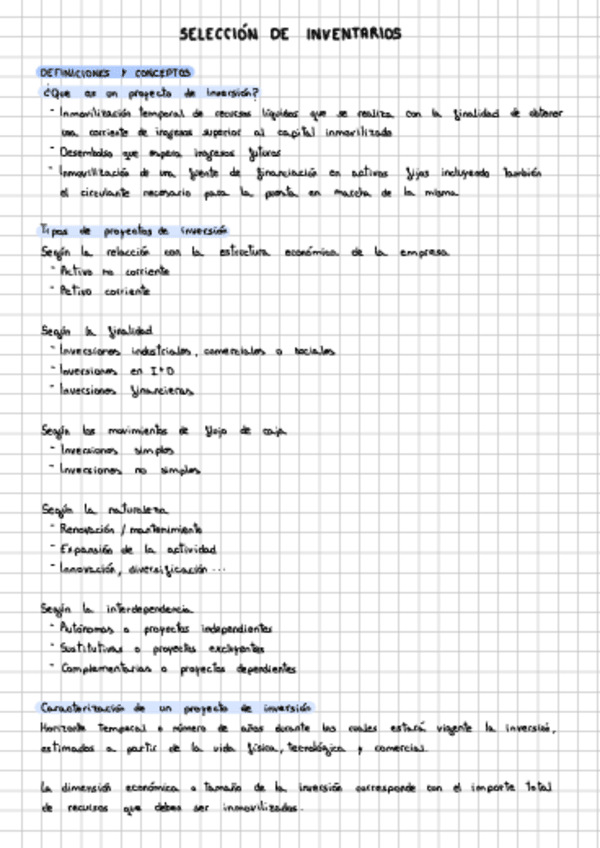 SELECCIÓN DE INVENTARIOS
DEFINICIONES Y CONCEPTOS
¿Que es un proyecto de inversión?
- Inmovilización temporal de recursos líquidos que se realiza con la finalidad de obtener
una corriente de ingresos superior al capital inmovilizado
- Desembolso que espera ingresos futuros
- Inmovilización de una fuente de financiación en activos fijos incluyendo también
el circulante necesario para la puesta en marcha de la misma
Tipos de proyectos de inversión
Según la relacción con la estructura económica de la empresa
- Activo no corriente
- Activo corriente
Según la finalidad
- Inversiones industriales, comerciales o sociales
- Inversiones en I+D
- Inversiones financieras
Según los movimientos de flujo de caja
- Inversiones simples
- Inversiones no simples
Según la naturaleza
- Renovación / mantenimiento
- Expansión de la actividad
- Innovación, diversificación ...
Según la interdependencia
- Autónomas o proyectos independientes
- Sustitutivas o proyectos excluyentes
- Complementarias o proyectos dependientes
Caracterización de un proyecto de inversión
Horizonte Temporal o número de años durante los cuales estará vigente la inversión,
estimados a partir de la vida física, tecnológica y comercial.
La dimensión económica o tamaño de la inversión corresponde con el importe total
de recursos que deben ser inmovilizados.